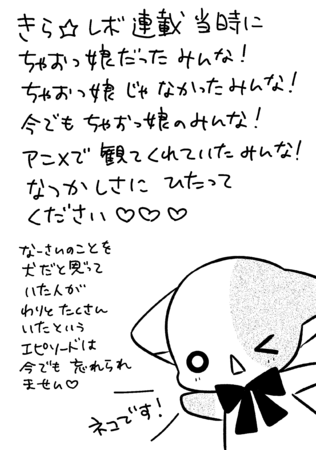 きら☆レボ連載当時に
ちゃおっ娘だったみんな！
ちゃおっ娘じゃなかったみんな！
今でもちゃおっ娘のみんな！
アニメで観てくれていたみんな！
なつかしさにひたって
ください♡♡♡
なーさんのことを
犬だと思って
いた人が
わりとたくさん
いたという
エピソードは
今でも忘れられ
ません♡
ネコです！